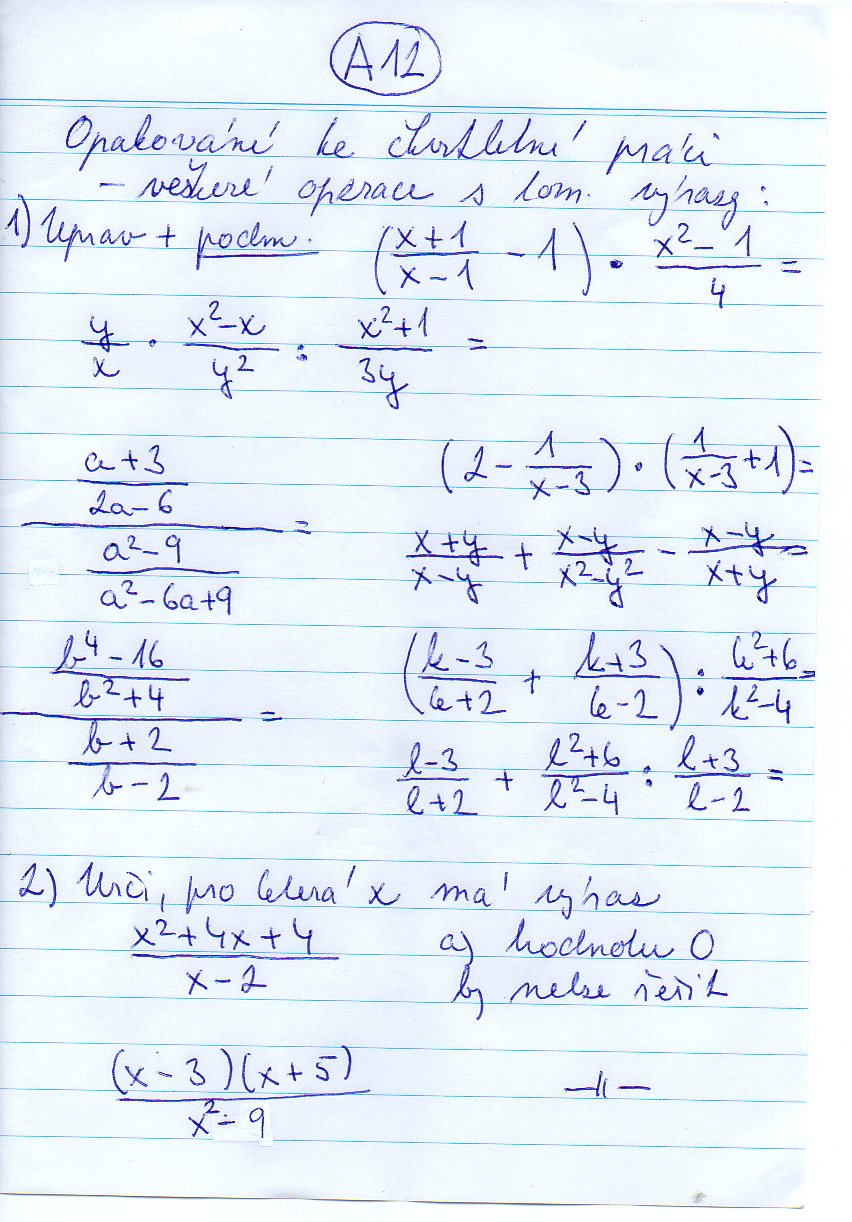 A12
Opakování ke čtvrtletní práci
- veškeré operace s lom. výrazy:
1) Uprav + podm. ((x+1)/(x-1) - 1) · (x²-1)/4 =
y/x · (x²-x)/y² : (x²+1)/3y =
((a+3)/(2a-6))/((a²-9)/(a²-6a+9)) =
(2 - 1/(x-3)) · (1/(x-3) + 1) =
(x+y)/(x-y) + (x-y)/(x²-y²) - (x-y)/(x+y) =
((b⁴-16)/(b²+4))/((b+2)/(b-2)) =
((k-3)/(k+2) + (k+3)/(k-2)) : (k²+6)/(k²-4) =
(l-3)/(l+2) + (l²+6)/(l²-4) : (l+3)/(l-2) =
2) Urči, pro která x má výraz
(x²+4x+4)/(x-2) a) hodnotu 0
b) nelze řešit
((x-3)(x+5))/(x²-9) —||—